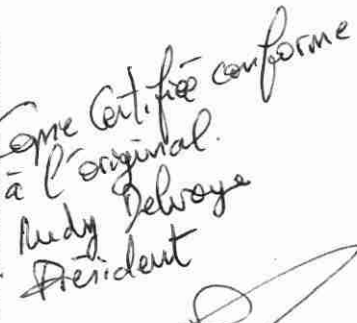 Copie Certifiée conforme
à l'original.
Rudy Delvoye
Président